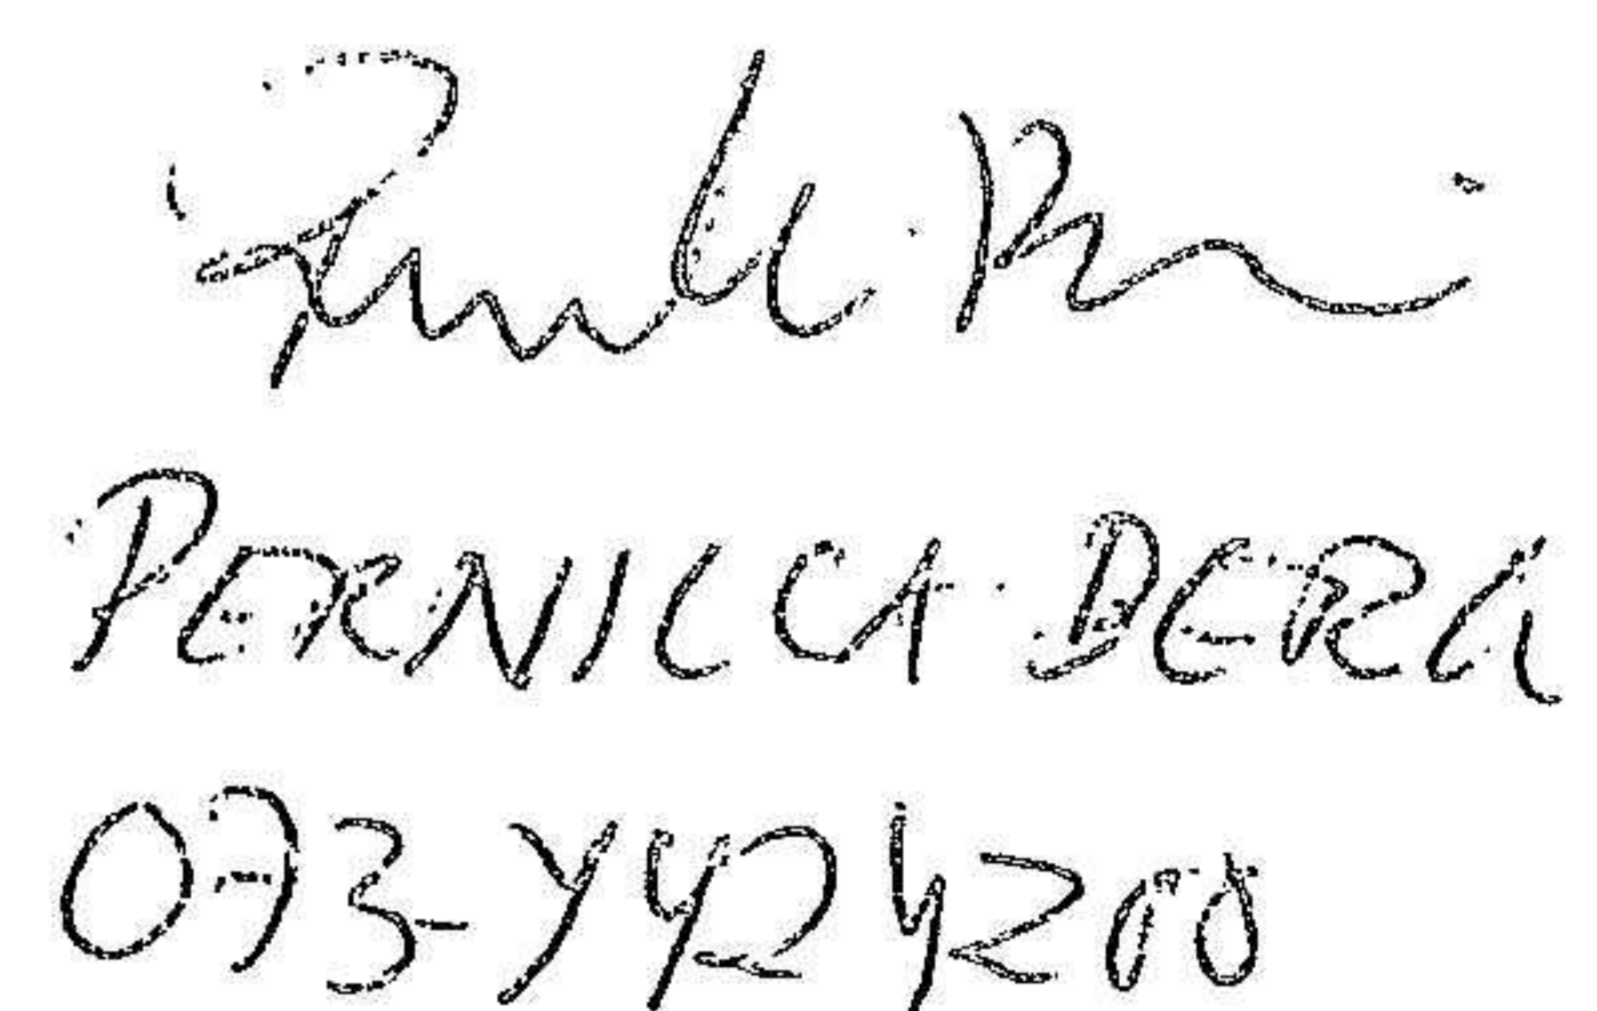 PERNILLA BERG
073-4424200